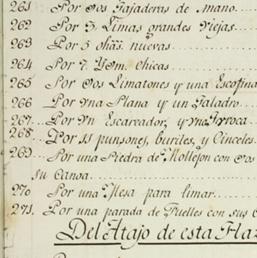 261 Por dos Tajaderas de mano.
262 Por 3 Limas grandes viejas
263 Por 5 ohas nuevas
264 Por 7 Ydm. chicas
265 Por dos Limatones y una Escofina
266 Por Vna Plana y un Taladro
267 Por Vn Escareador, y Vna
268 Por 11 punsones, buriles, y Cinceles
269 Por una Piedra de Mollejon con dos
su Canoa.
270 Por una Mesa para limar.
271. Por una parada de Fuelles con sus
Del Atajo de esta